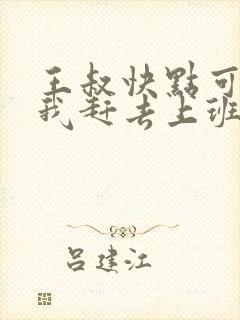 王叔快點可
我赶去上班
吕建江